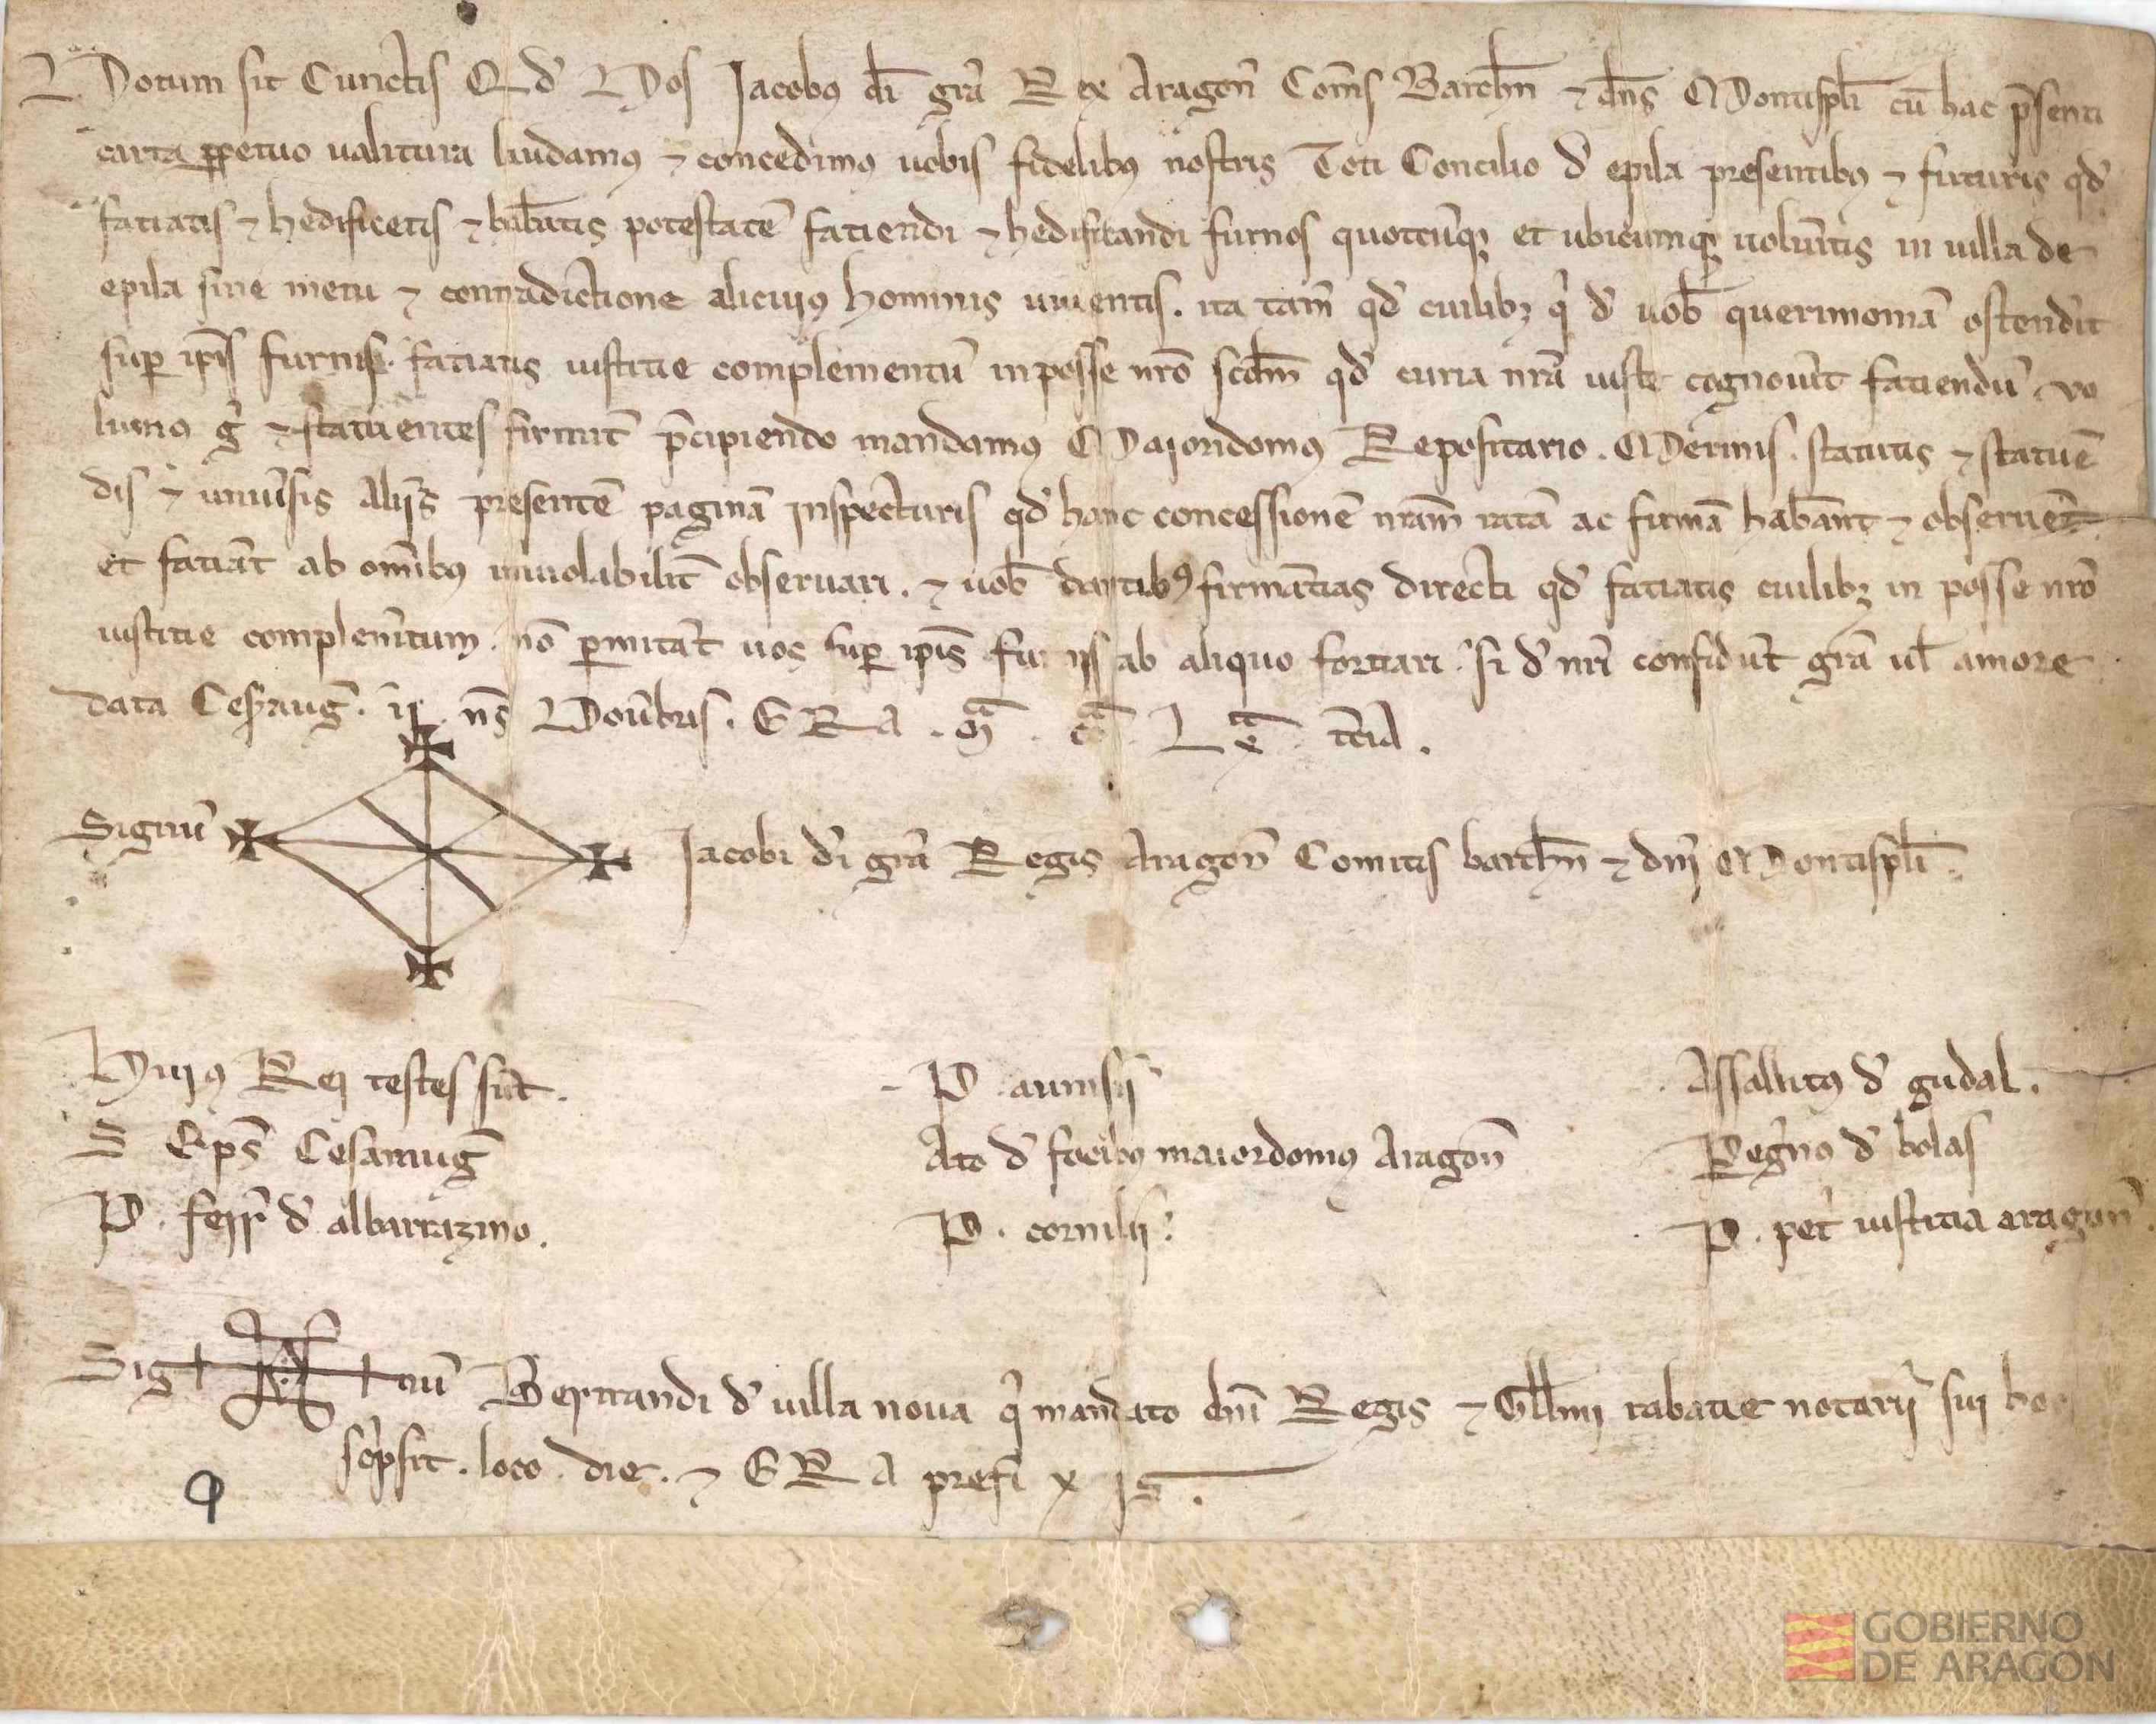 Notum sit Cunctis Qd Nos Jacobus di gra Rex Aragon Coms Barchn ⁊ dns Montispli cu hac psenti
carta ppetuo ualitura laudamus ⁊ concedimus uobis fidelibus nostris Toti Concilio d epila presentibus ⁊ futuris qd
fatiatis ⁊ hedificetis ⁊ habeatis potestate fatiendi ⁊ hedificandi furnos quotcunq et ubicumq uolueritis in uilla de
epila sine metu ⁊ contradictione alicuius hominis uiuentis. ita tam qd cuilibz qi d uob querimonia ostendit
sup ipis furnis. fatiatis iustitie complementu in posse nro scdm qd curia nra iuste cognouit fatiendu. uo
lumus g ⁊ statuentes firmit pcipiendo mandamus Maioridomus Repositario. Merinis. statutis ⁊ statue
dis ⁊ uniusis Aliis presente pagina inspecturis qd hanc concessione nram rata ac firma habeant ⁊ obseruet
et fatiat ab omibus inuiolabilit obseruari. ⁊ uob dantibus firmatias directi qd fatiatis cuilibz in posse nro
iustitie complemtum. no pmitat uos sup ipis furnis ab aliquo fortiari. si d nri confidut gra ul amore
data Cesaraug. ns Nouebris. ERA. Mª. CCª. Lxª. tcia.
Signu Jacobi di gra Regis Aragon Comitis barchn ⁊ dni Montispli.
Huius Rei testes sut. P. aunisii Assallitus d gudal.
S Eps Cesaraug Ato d focibus maiordomus Aragon Pegrino d bolas
P. ferr d albarrazino. P. cornilii. P. pet iustitia aragon.
Sig nu Bernandi d uilla noua qi mandato dni Regis ⁊ Gllmi rabatie notarii sui hoc
scpsit. loco. die. ⁊ ERA prefixis.
GOBIERNO
DE ARAGON